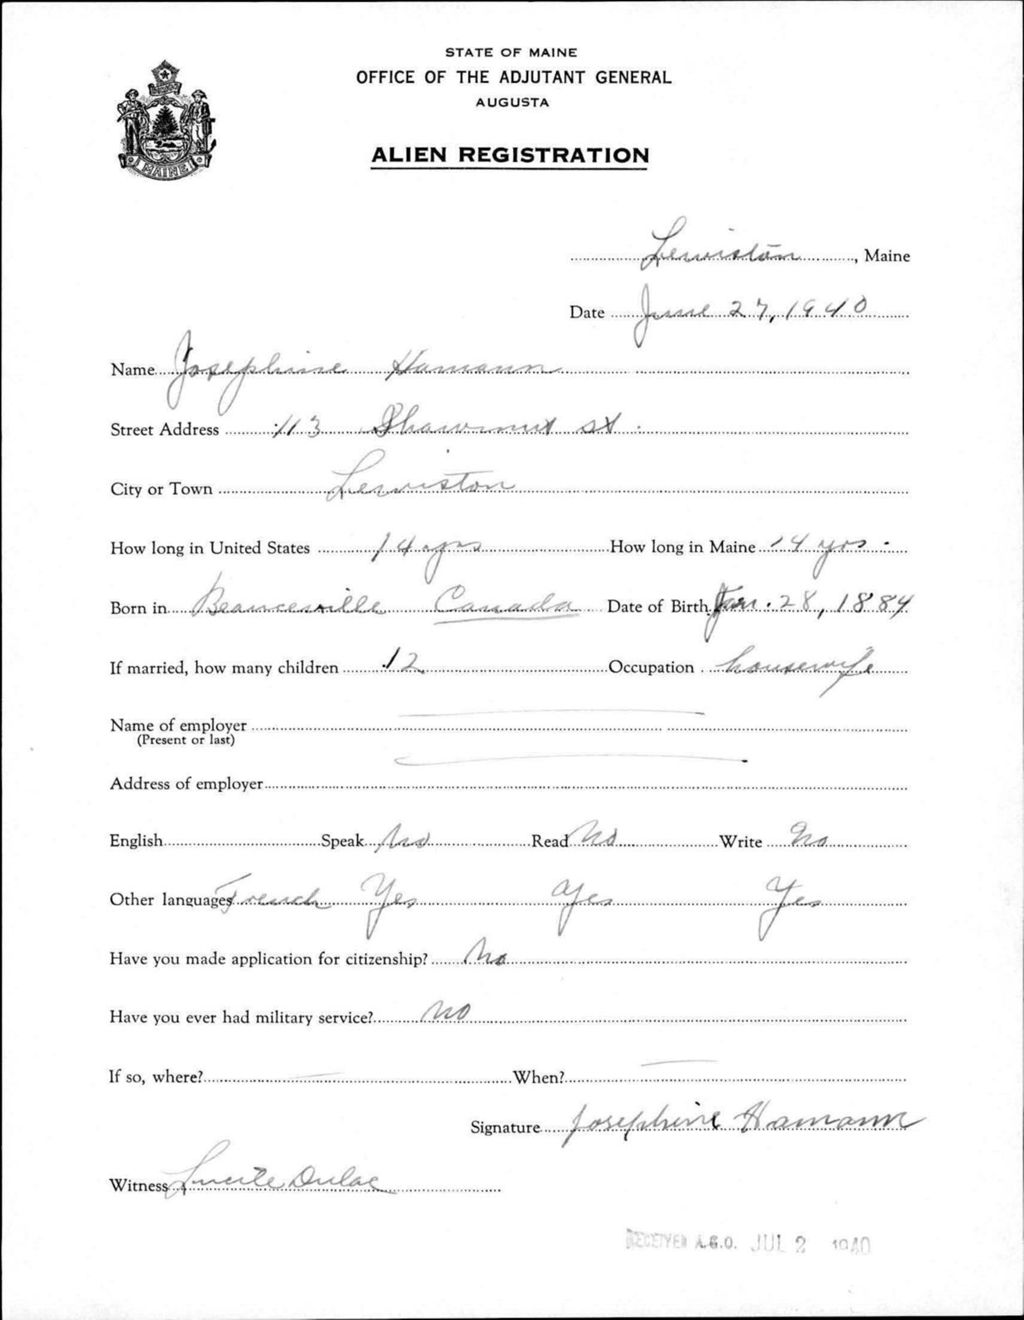 STATE OF MAINE
OFFICE OF THE ADJUTANT GENERAL
AUGUSTA
ALIEN REGISTRATION
MAINE
Lewiston, Maine
Date June 27, 1940
Name Josephine Hamann
Street Address 113 Shawmut st.
City or Town Lewiston
How long in United States 14 yrs How long in Maine 14 yrs.
Born in Beauceville Canada Date of Birth Jan. 28, 1884
If married, how many children 12 Occupation housewife
Name of employer
(Present or last)
Address of employer
English Speak No Read No Write No
Other languages French Yes Yes Yes
Have you made application for citizenship? No
Have you ever had military service? No
If so, where? When?
Signature Josephine Hamann
Witness Lucile Dulac
RECEIVED A.G.O. JUL 2 1940